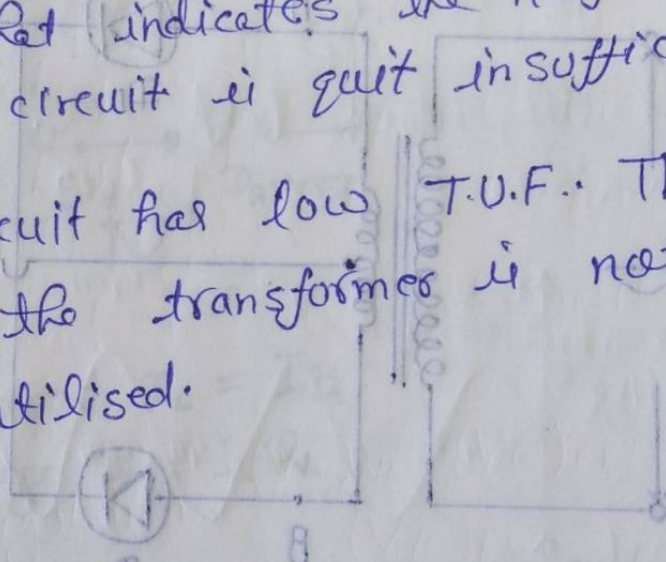 indicates the
circuit is quit insuffic
cuit has low T.U.F.. Th
the transformer is no
tilised.